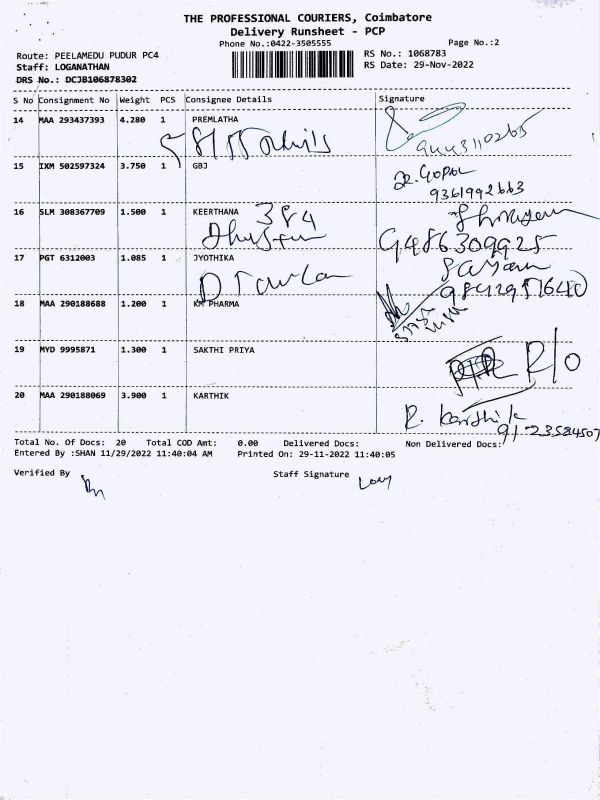 THE PROFESSIONAL COURIERS, Coimbatore
Delivery Runsheet - PCP
Phone No.:0422-3505555
Page No.:2
Route: PEELAMEDU PUDUR PC4
RS No.: 1068783
Staff: LOGANATHAN
RS Date: 29-Nov-2022
DRS No.: DCJB106878302
S No Consignment No Weight PCS Consignee Details Signature
14 MAA 293437393 4.280 1 PREMLATHA
15 IXM 502597324 3.750 1 GBJ
R. Gopal
9361992663
16 SLM 308367709 1.500 1 KEERTHANA 384
9486309925
17 PGT 6312003 1.085 1 JYOTHIKA
18 MAA 290188688 1.200 1 KM PHARMA
19 MYD 9995871 1.300 1 SAKTHI PRIYA R/O
20 MAA 290188069 3.900 1 KARTHIK
R. Karthik
9123584507
Total No. Of Docs: 20 Total COD Amt: 0.00 Delivered Docs: Non Delivered Docs:
Entered By :SHAN 11/29/2022 11:40:04 AM Printed On: 29-11-2022 11:40:05
Verified By Staff Signature